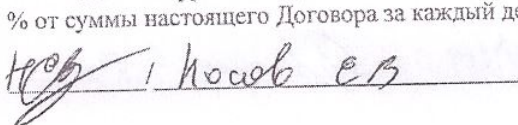 % от суммы настоящего Договора за каждый де
/ Носов ЕВ